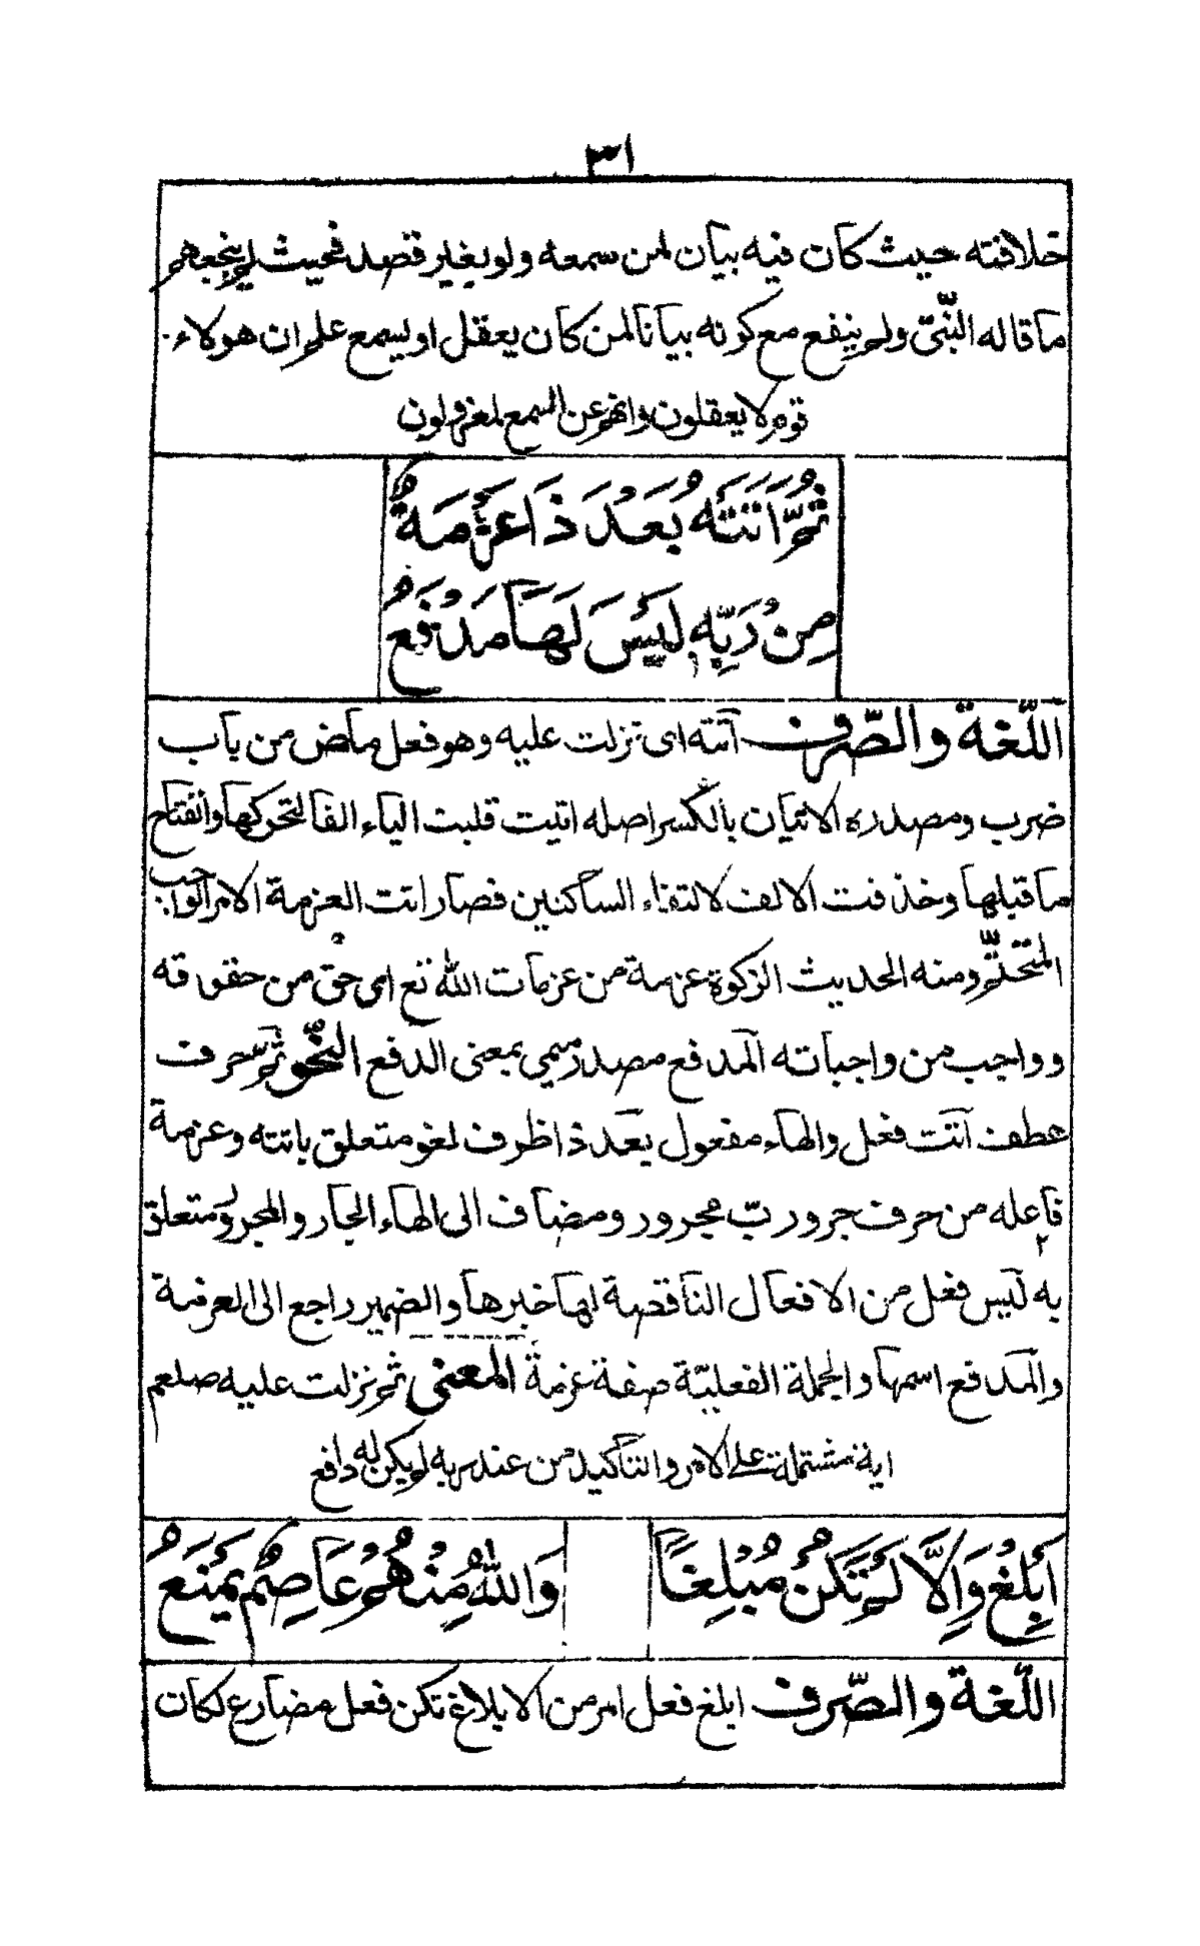 ٣١
خلافته حيث كان فيه بيان لمن سمعه ولو بغير قصد فحيث لم ينجعهم
ما قاله النّبيّ ولم ينفع مع كونه بيانا لمن كان يعقل او يسمع علم ان هولاء
قوم لا يعقلون وانهم عن السمع لمعزولون
ثُمَّ اَتَتْهُ بَعْدَ ذَا عَزْمَةٌ
مِنْ رَبِّهِ لَيْسَ لَهَا مَدْفَعُ
اللّغة والصّرف أتته اى نزلت عليه وهو فعل ماض من باب
ضرب ومصدره الاتيان بالكسر اصله اتيت قلبت الياء الفا لتحركها وانفتاح
ما قبلها وحذفت الالف لالتقاء الساكنين فصار اتت العزمة الامر الواجب
المتحتّم ومنه الحديث الزكوة عزمة من عزمات الله تع اى حق من حقوقه
و واجب من واجباته المدفع مصدر ميمي بمعنى الدفع النّحو ثمّ حرف
عطف أتت فعل والهاء مفعول بعد ذا ظرف لغو متعلق باتته وعزمة
فاعله من حرف جر ورب مجرور ومضاف الى الهاء الجار والمجرور متعلق
به ليس فعل من الافعال الناقصة لها خبرها والضمير راجع الى العزمة
والمدفع اسمها والجملة الفعليّة صفة عزمة المعنى ثم نزلت عليه صلعم
اية مشتملة على الامر والتاكيد من عند ربه لم يكن له دافع
اَبْلِغْ وَاِلَّا لَمْ تَكُنْ مُبْلِغًا وَاللهُ مِنْهُمْ عَاصِمٌ يَمْنَعُ
اللّغة والصّرف ابلغ فعل امر من الابلاغ تكن فعل مضارع لكان